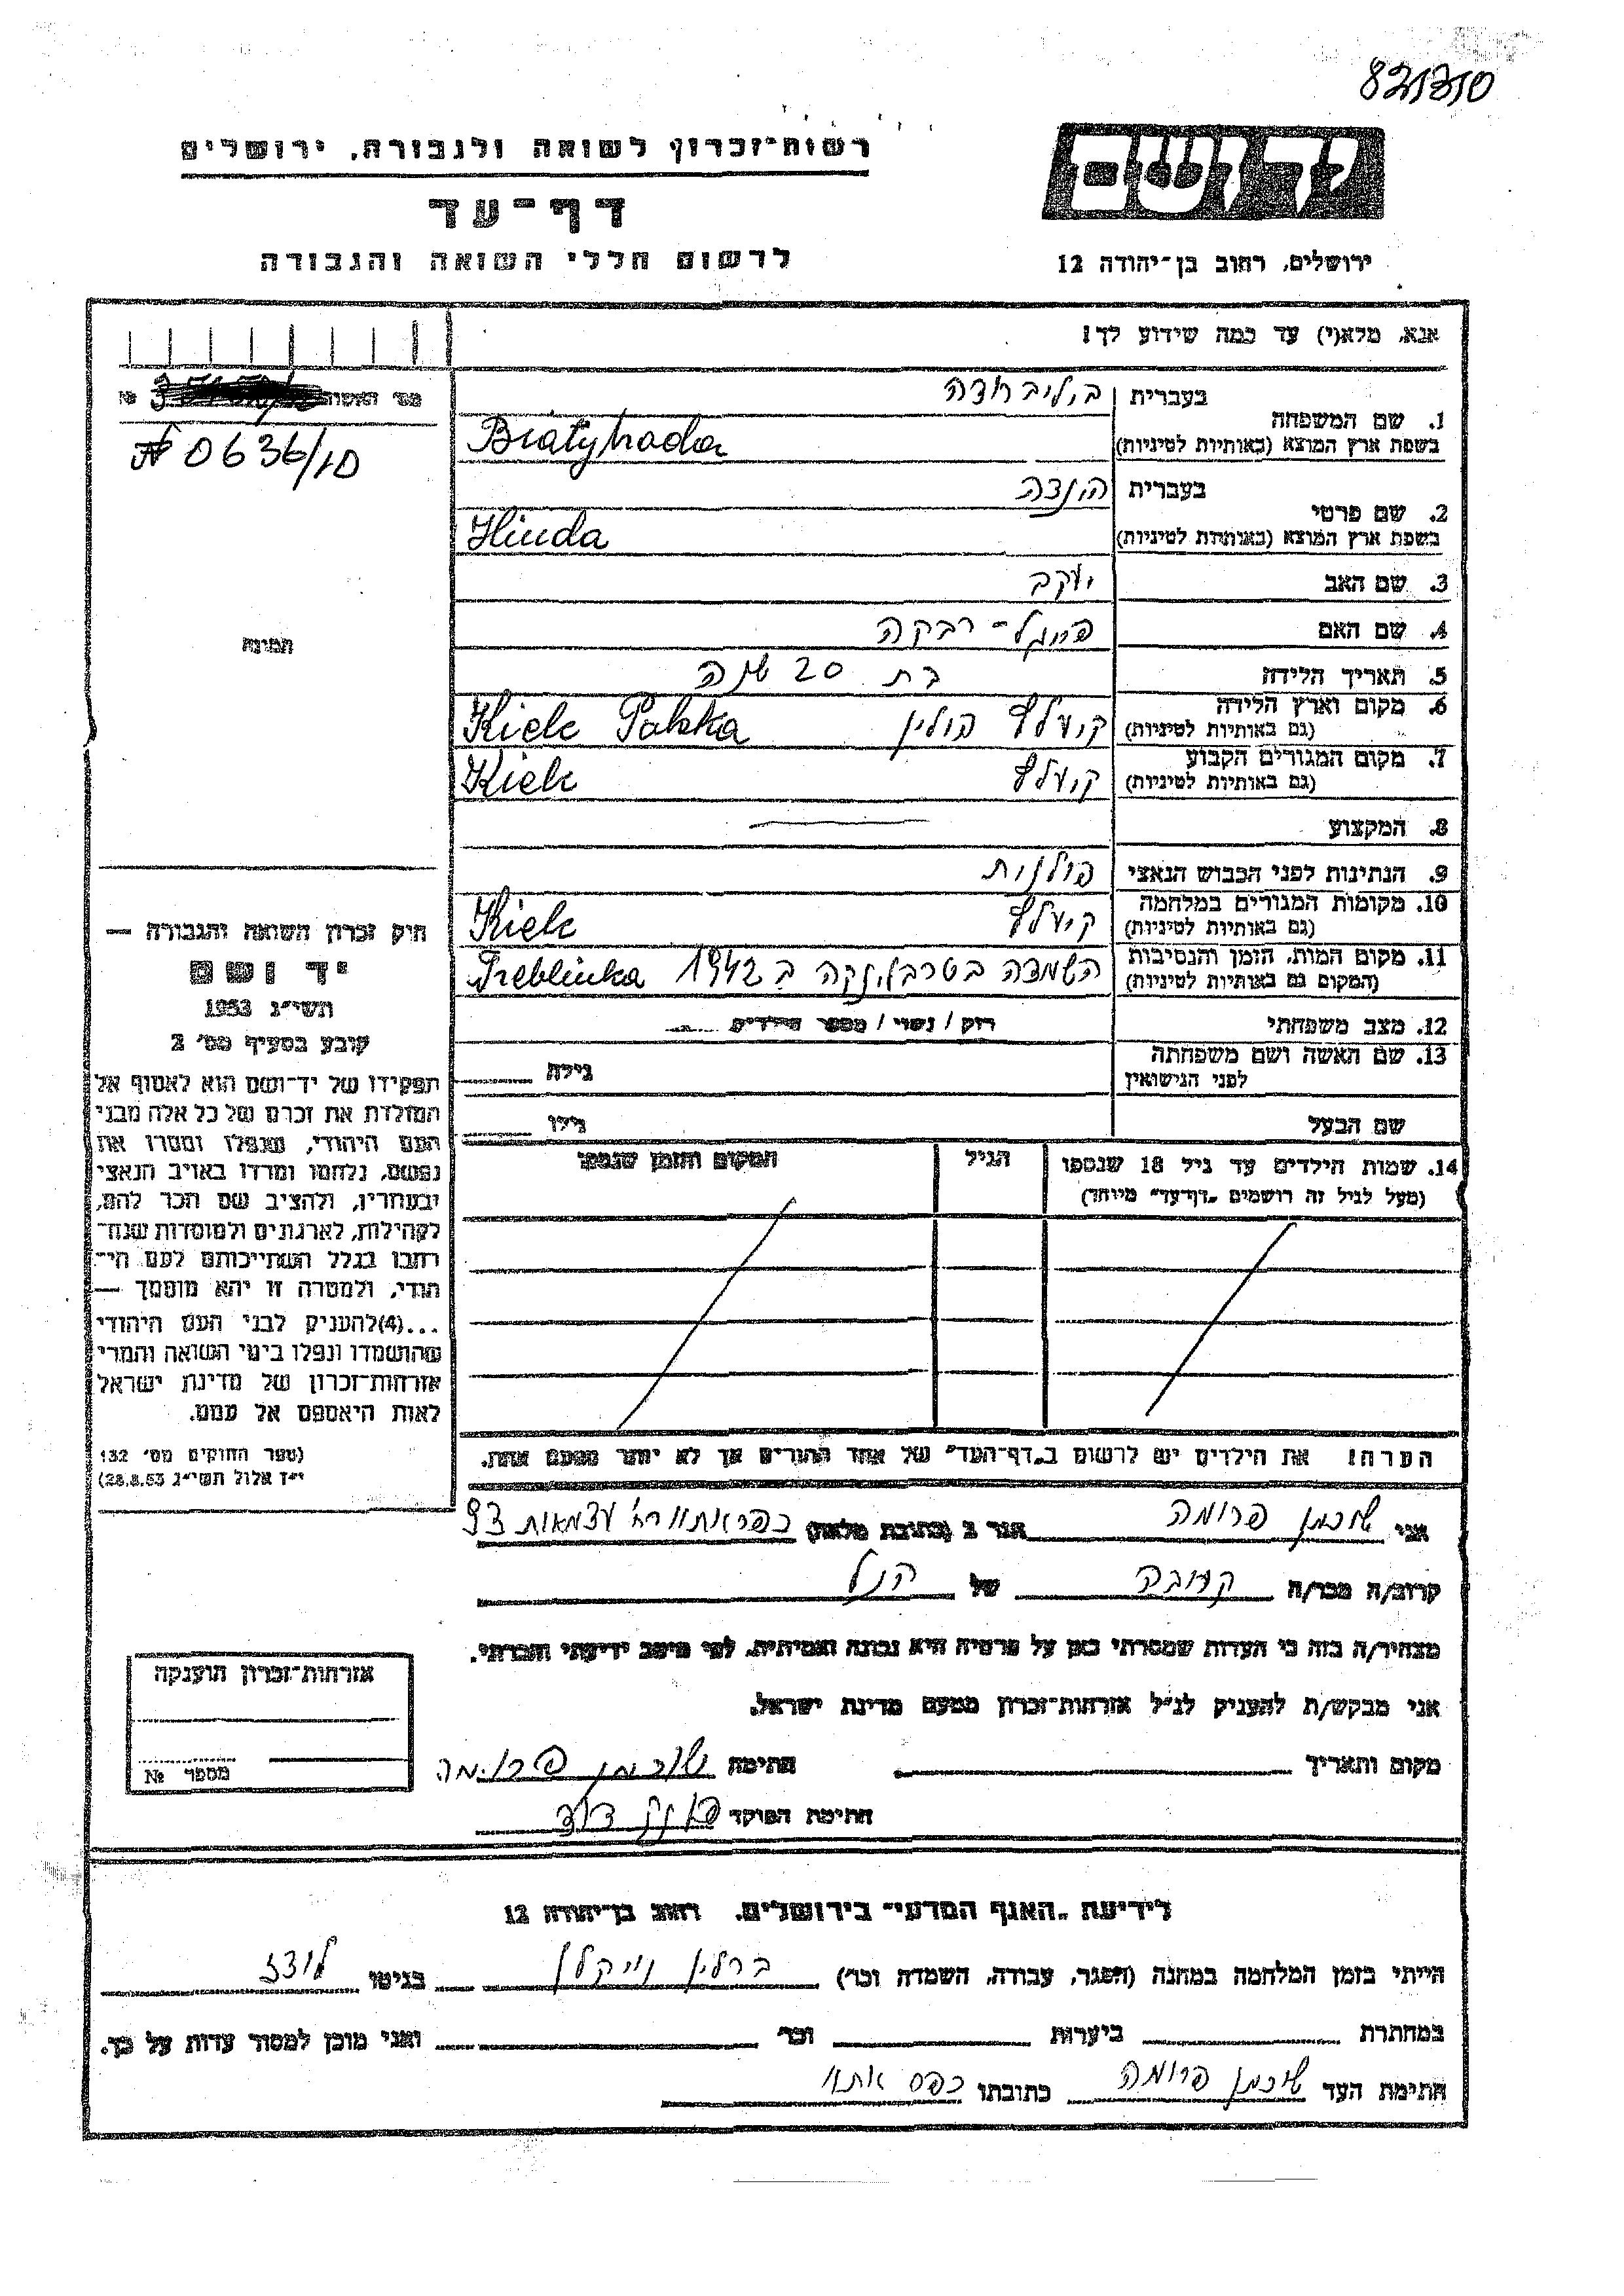 821310
רשות־זכרון לשואה ולגבורה, ירושלים
דף־עד
לרשום חללי השואה והגבורה
יד ושם
ירושלים, רחוב בן־יהודה 12
אנא, מלא(י) עד כמה שידוע לך!
1. שם המשפחה בעברית
בשפת ארץ המוצא (באותיות לטיניות)
2. שם פרטי בעברית הינדה
בשפת ארץ המוצא (באותיות לטיניות) Hinda
3. שם האב יעקב
4. שם האם פייגל־רבקה
5. תאריך הלידה בת 20 שנה
6. מקום וארץ הלידה
(גם באותיות לטיניות) קיעלץ פולין Kielc Polska
7. מקום המגורים הקבוע
(גם באותיות לטיניות) קיעלץ Kielc
8. המקצוע —
9. הנתינות לפני הכבוש הנאצי פולנית
10. מקומות המגורים במלחמה
(גם באותיות לטיניות) קיעלץ Kielc
11. מקום המות, הזמן והנסיבות
(המקום גם באותיות לטיניות) השמדה בטרבלינקה ב 1942 Treblinka
12. מצב משפחתי רווק / נשוי / מספר הילדים
13. שם האשה ושם משפחתה
לפני הנישואין גילה
שם הבעל גילו
14. שמות הילדים עד גיל 18 שנספו הגיל המקום והזמן שנספו
(מעל לגיל זה רושמים „דף־עד" מיוחד)
הערה! את הילדים יש לרשום ב„דף־העד" של אחד ההורים אך לא יותר מפעם אחת.
מס' האשה №
№ 0636/10
תמונה
חוק זכרון השואה והגבורה —
יד ושם
תשי״ג 1953
קובע בסעיף מס' 2
תפקידו של יד־ושם הוא לאסוף אל
המולדת את זכרם של כל אלה מבני
העם היהודי, שנפלו ומסרו את
נפשם, נלחמו ומרדו באויב הנאצי
ובעוזריו, ולהציב שם וזכר להם,
לקהילות, לארגונים ולמוסדות שנח־
רבו בגלל השתייכותם לעם הי־
הודי, ולמטרה זו יהא מוסמך —
...(4)להעניק לבני העם היהודי
שהושמדו ונפלו בימי השואה והמרי
אזרחות־זכרון של מדינת ישראל
לאות היאספם אל עמם.
(ספר החוקים מס' 132
י״ז אלול תשי״ג 28.8.53)
אני שוכמן פרומה הגר ב (כתובת מלאה) כפר אתא רח' עצמאות 93
קרוב/ה מכר/ה קרובה של הנל
מצהיר/ה בזה כי העדות שמסרתי כאן על פרטיה היא נכונה ואמיתית, לפי מיטב ידיעתי והכרתי.
אני מבקש/ת להעניק לנ״ל אזרחות־זכרון מטעם מדינת ישראל.
מקום ותאריך חתימה שוכמן פרומה
חתימת הפוקד
אזרחות־זכרון הוענקה
מספר №
לידיעת „האגף המדעי" בירושלים, רחוב בן־יהודה 12
הייתי בזמן המלחמה במחנה (הסגר, עבודה, השמדה וכד') ברלין בגיטו לודז
במחתרת ביערות וכד' ואני מוכן למסור עדות על כך.
חתימת העד שוכמן פרומה כתובתו כפר אתא